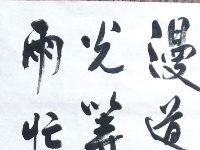 漫道
光
雨忙